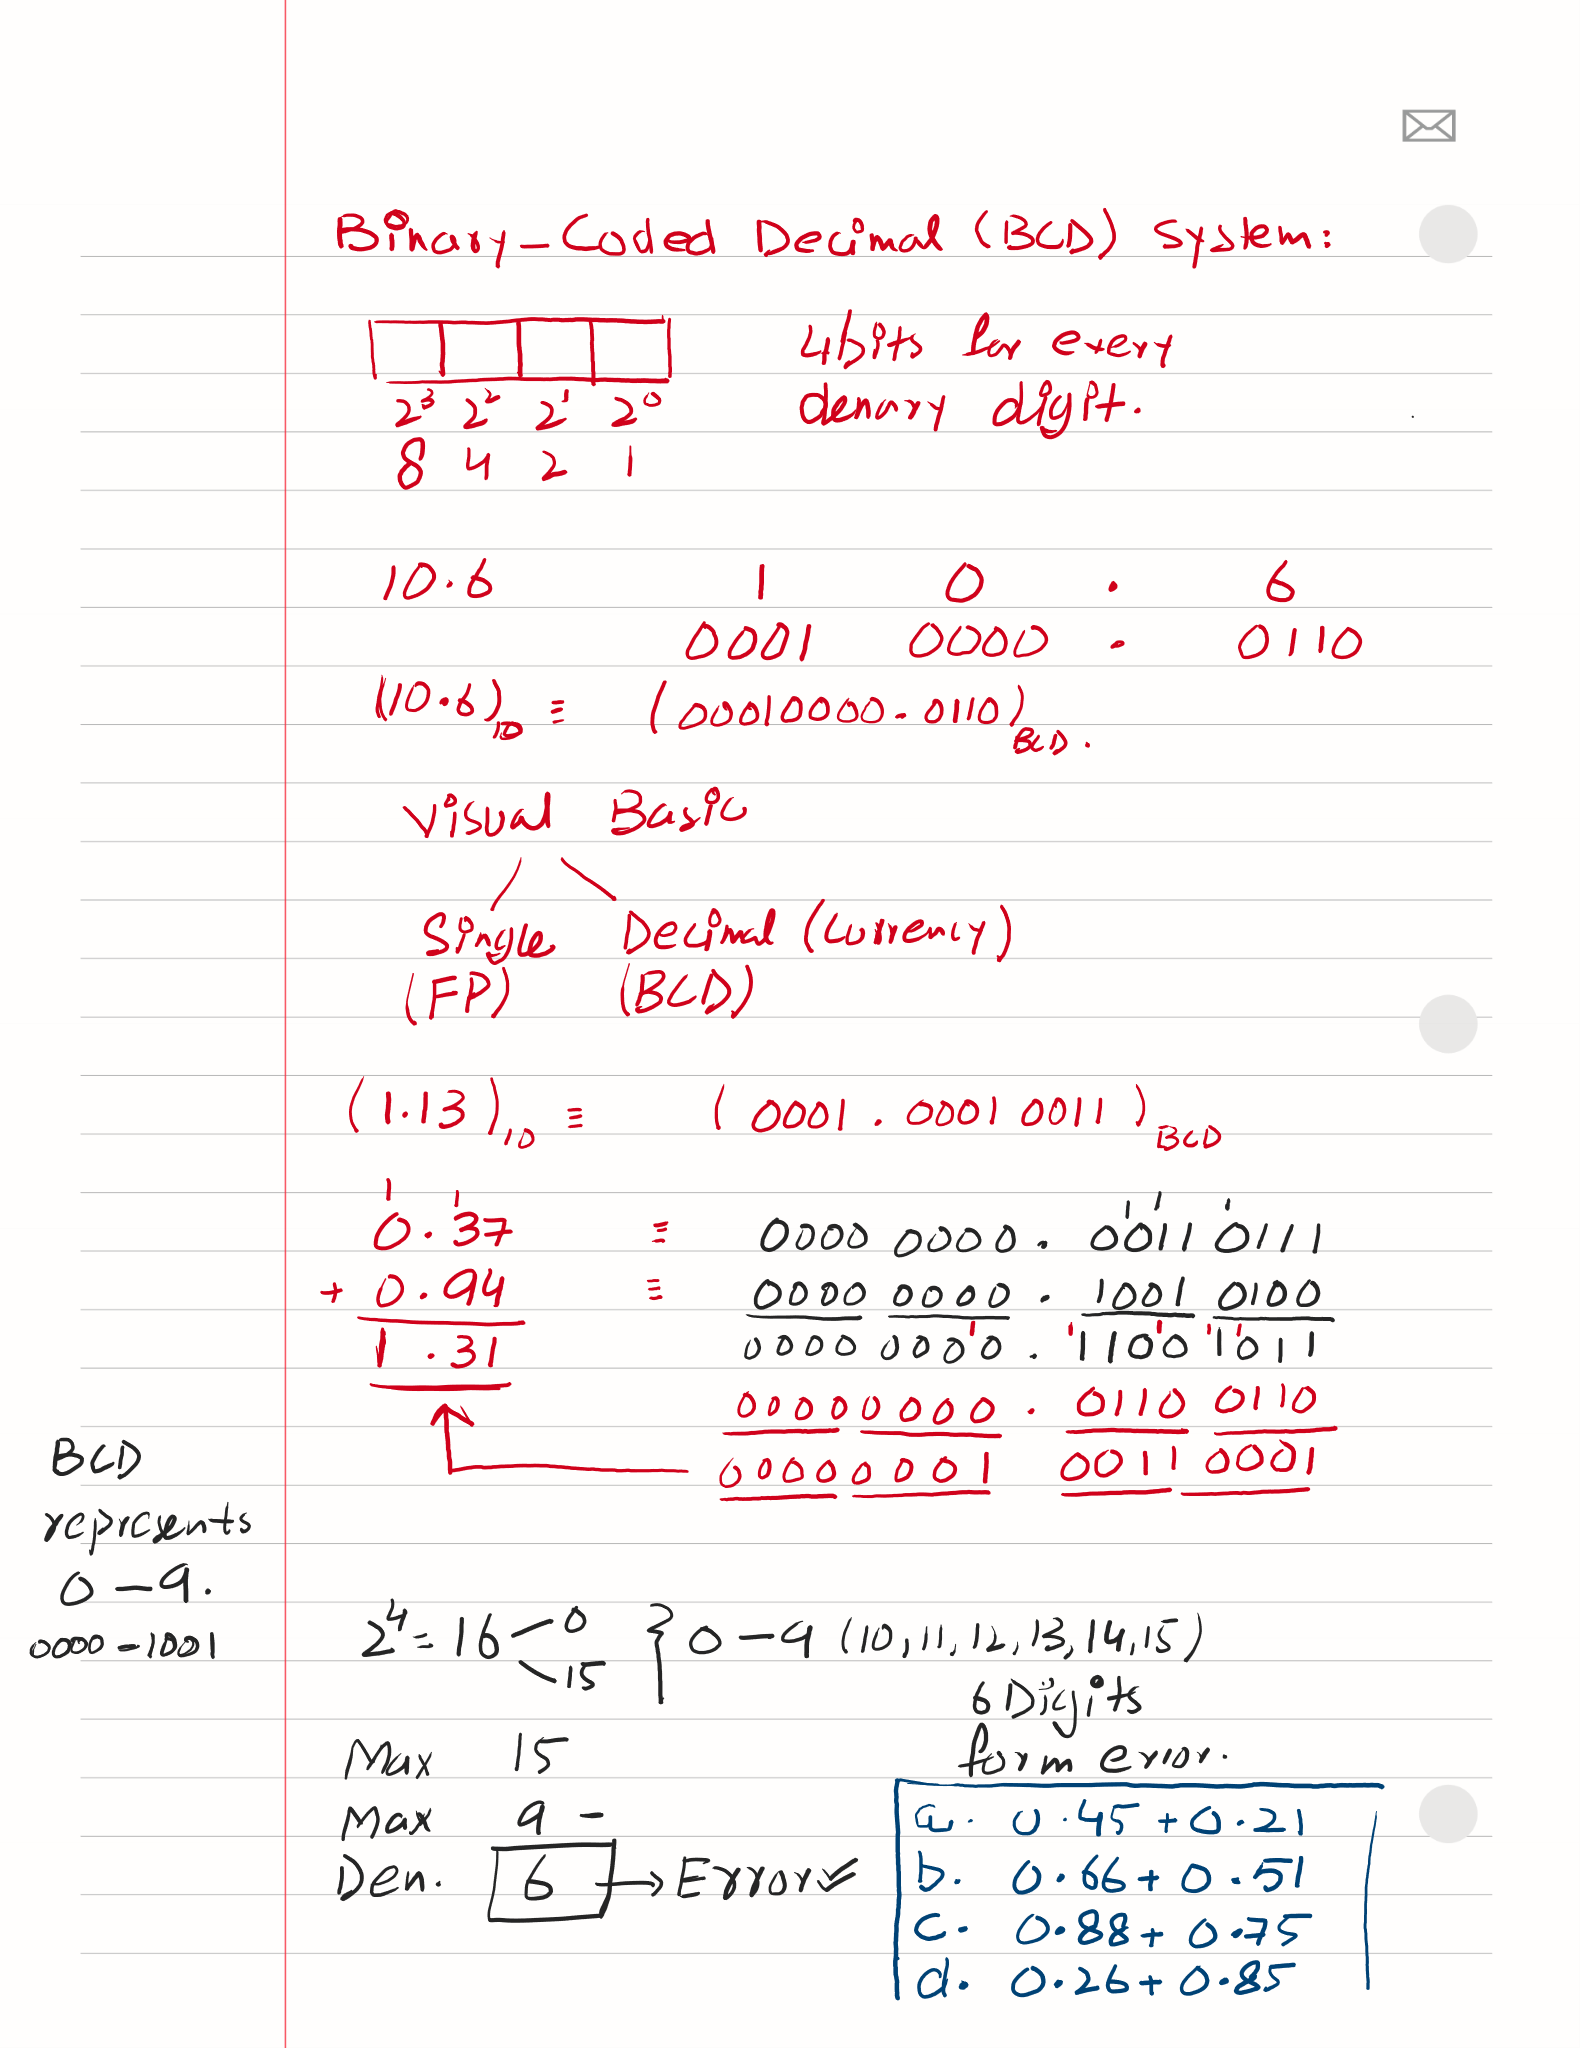 Binary-Coded Decimal (BCD) System:
4bits for every
denary digit.
2³ 2² 2¹ 2⁰
8 4 2 1
10.6 1 0 . 6
0001 0000 . 0110
(10.6)₁₀ ≡ (00010000.0110)BCD.
Visual Basic
Single Decimal (Currency)
(FP) (BCD)
(1.13)₁₀ ≡ (0001.0001 0011)BCD
1 1 1 1 1
0.37 ≡ 0000 0000. 0011 0111
+ 0.94 ≡ 0000 0000. 1001 0100
1 1 1 1 1
1.31 0000 0000. 1100 1011
0000 0000. 0110 0110
0000 0001 0011 0001
BCD
represents
0-9.
0000-1001
2⁴ = 16 0 } 0-9 (10,11,12,13,14,15)
15
6 Digits
form error.
Max 15
Max 9 -
Den. 6 → Error✓
a. 0.45+0.21
b. 0.66+0.51
c. 0.88+0.75
d. 0.26+0.85